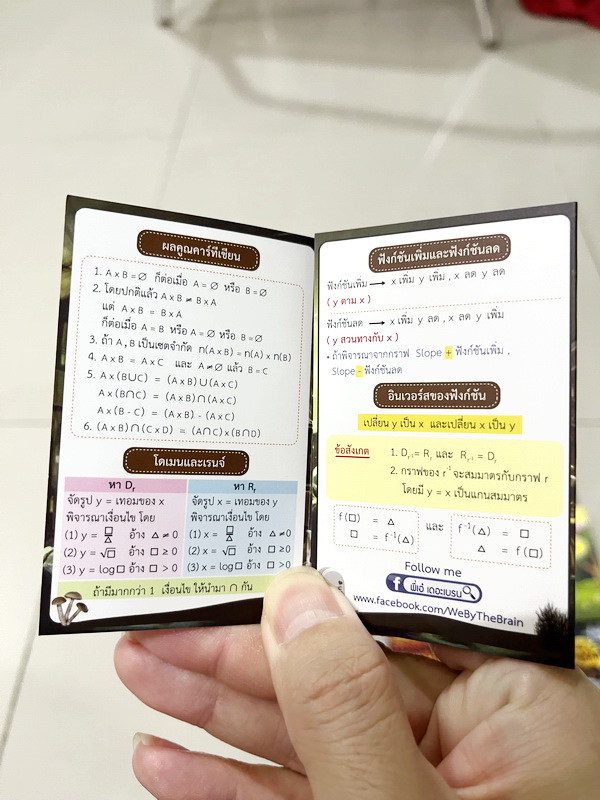 ผลคูณคาร์ทีเซียน
1. A x B = ∅ ก็ต่อเมื่อ A = ∅ หรือ B = ∅
2. โดยปกติแล้ว A x B ≠ B x A
แต่ A x B = B x A
ก็ต่อเมื่อ A = B หรือ A = ∅ หรือ B = ∅
3. ถ้า A , B เป็นเซตจำกัด n(A x B) = n(A) x n(B)
4. A x B = A x C และ A ≠ ∅ แล้ว B = C
5. A x (B∪C) = (A x B)∪(A x C)
A x (B∩C) = (A x B)∩(A x C)
A x (B - C) = (A x B) - (A x C)
6. (A x B)∩(C x D) = (A∩C) x (B∩D)
โดเมนและเรนจ์
หา Dᵣ
จัดรูป y = เทอมของ x
พิจารณาเงื่อนไข โดย
(1) y = □/△ อ้าง △ ≠ 0
(2) y = √□ อ้าง □ ≥ 0
(3) y = log□ อ้าง □ > 0
หา Rᵣ
จัดรูป x = เทอมของ y
พิจารณาเงื่อนไข โดย
(1) x = □/△ อ้าง △ ≠ 0
(2) x = √□ อ้าง □ ≥ 0
(3) x = log□ อ้าง □ > 0
ถ้ามีมากกว่า 1 เงื่อนไข ให้นำมา ∩ กัน
ฟังก์ชันเพิ่มและฟังก์ชันลด
ฟังก์ชันเพิ่ม → x เพิ่ม y เพิ่ม , x ลด y ลด
( y ตาม x )
ฟังก์ชันลด → x เพิ่ม y ลด , x ลด y เพิ่ม
( y สวนทางกับ x )
• ถ้าพิจารณาจากกราฟ Slope + ฟังก์ชันเพิ่ม ,
Slope - ฟังก์ชันลด
อินเวอร์สของฟังก์ชัน
เปลี่ยน y เป็น x และเปลี่ยน x เป็น y
ข้อสังเกต
1. Dᵣ₋₁ = Rᵣ และ Rᵣ₋₁ = Dᵣ
2. กราฟของ r⁻¹ จะสมมาตรกับกราฟ r
โดยมี y = x เป็นแกนสมมาตร
f (□) = △
□ = f⁻¹(△)
และ
f⁻¹(△) = □
△ = f (□)
Follow me
f พี่เอ๋ เดอะเบรน
www.facebook.com/WeByTheBrain